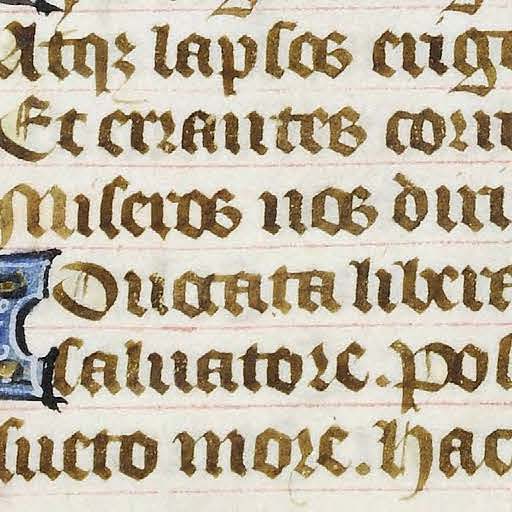 Atqꝫ lapsos erig
Et errantes corri
Miseros nos diri
Ducata libera
saluatore. pos
sueto more. Hac